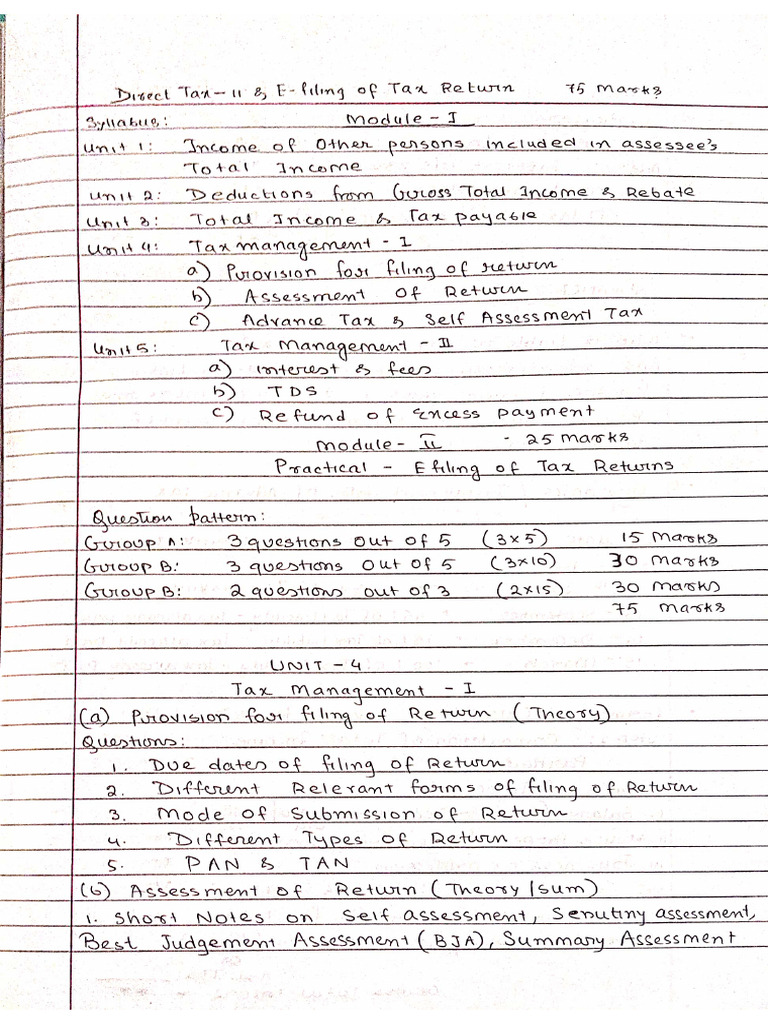 Direct Tax-II & E-filing of Tax Return 75 Marks
Syllabus: Module-I
Unit 1: Income of Other persons included in assessee's
Total Income
Unit 2: Deductions from Gross Total Income & Rebate
Unit 3: Total Income & Tax payable
Unit 4: Tax management - I
a) Provision for filing of return
b) Assessment of Return
c) Advance Tax & Self Assessment Tax
Unit 5: Tax Management - II
a) interest & fees
b) TDS
c) Refund of Excess payment
Module-II - 25 marks
Practical - Efiling of Tax Returns
Question pattern:
Group A: 3 questions out of 5 (3x5) 15 Marks
Group B: 3 questions Out of 5 (3x10) 30 Marks
Group B: 2 questions out of 3 (2x15) 30 Marks
75 marks
UNIT - 4
Tax Management - I
(a) Provision for filing of Return (Theory)
Questions:
1. Due dates of filing of Return
2. Different Relerant forms of filing of Return
3. Mode of Submission of Return
4. Different Types of Return
5. PAN & TAN
(b) Assessment of Return (Theory/sum)
1. Short Notes on Self assessment, Scrutiny assessment,
Best Judgement Assessment (BJA), Summary Assessment